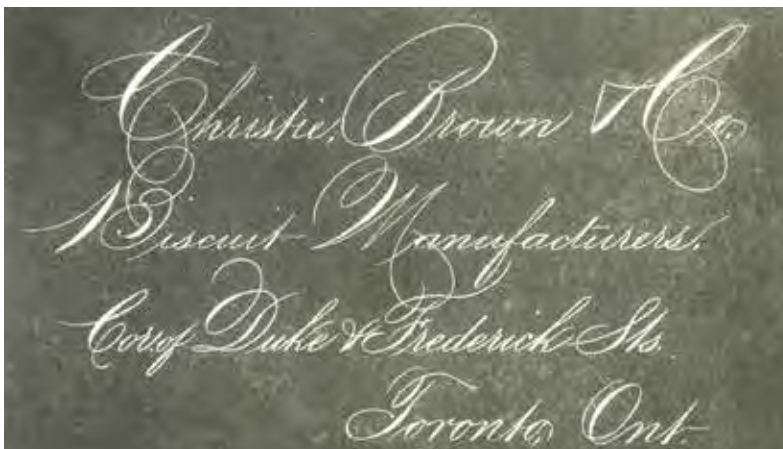 Christie, Brown & Co.
Biscuit Manufacturers.
Cor. of Duke & Frederick Sts.
Toronto Ont.